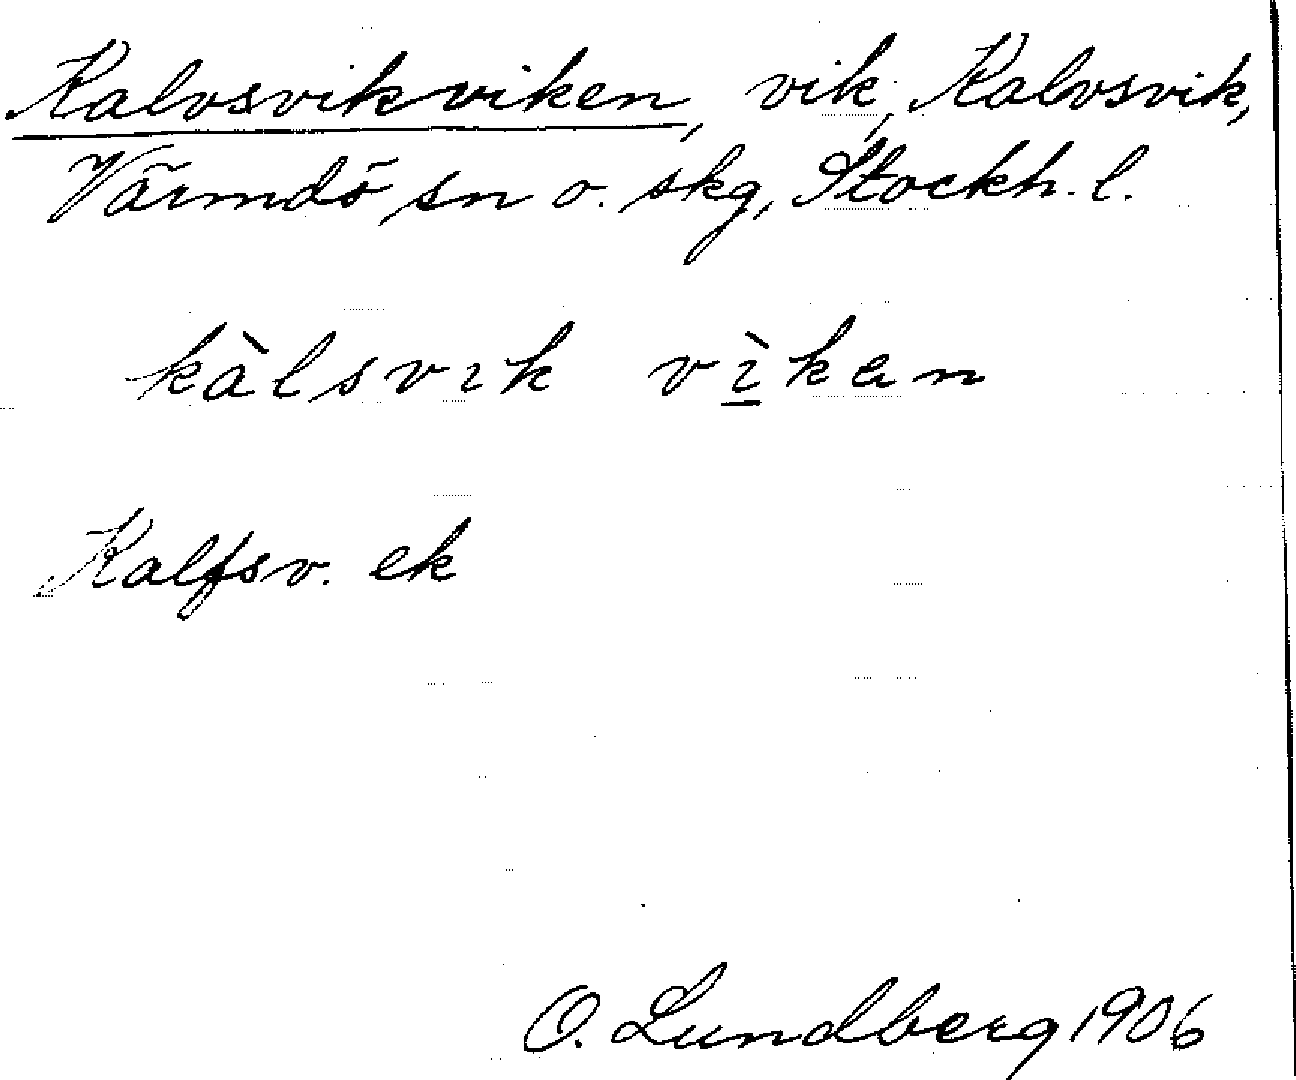 Kalvsvikviken, vik, Kalvsvik,
Värmdö sn o. skg, Stockh. l.
kàlsvɪk vì̱kan
Kalfsv. ek
O. Lundberg 1906